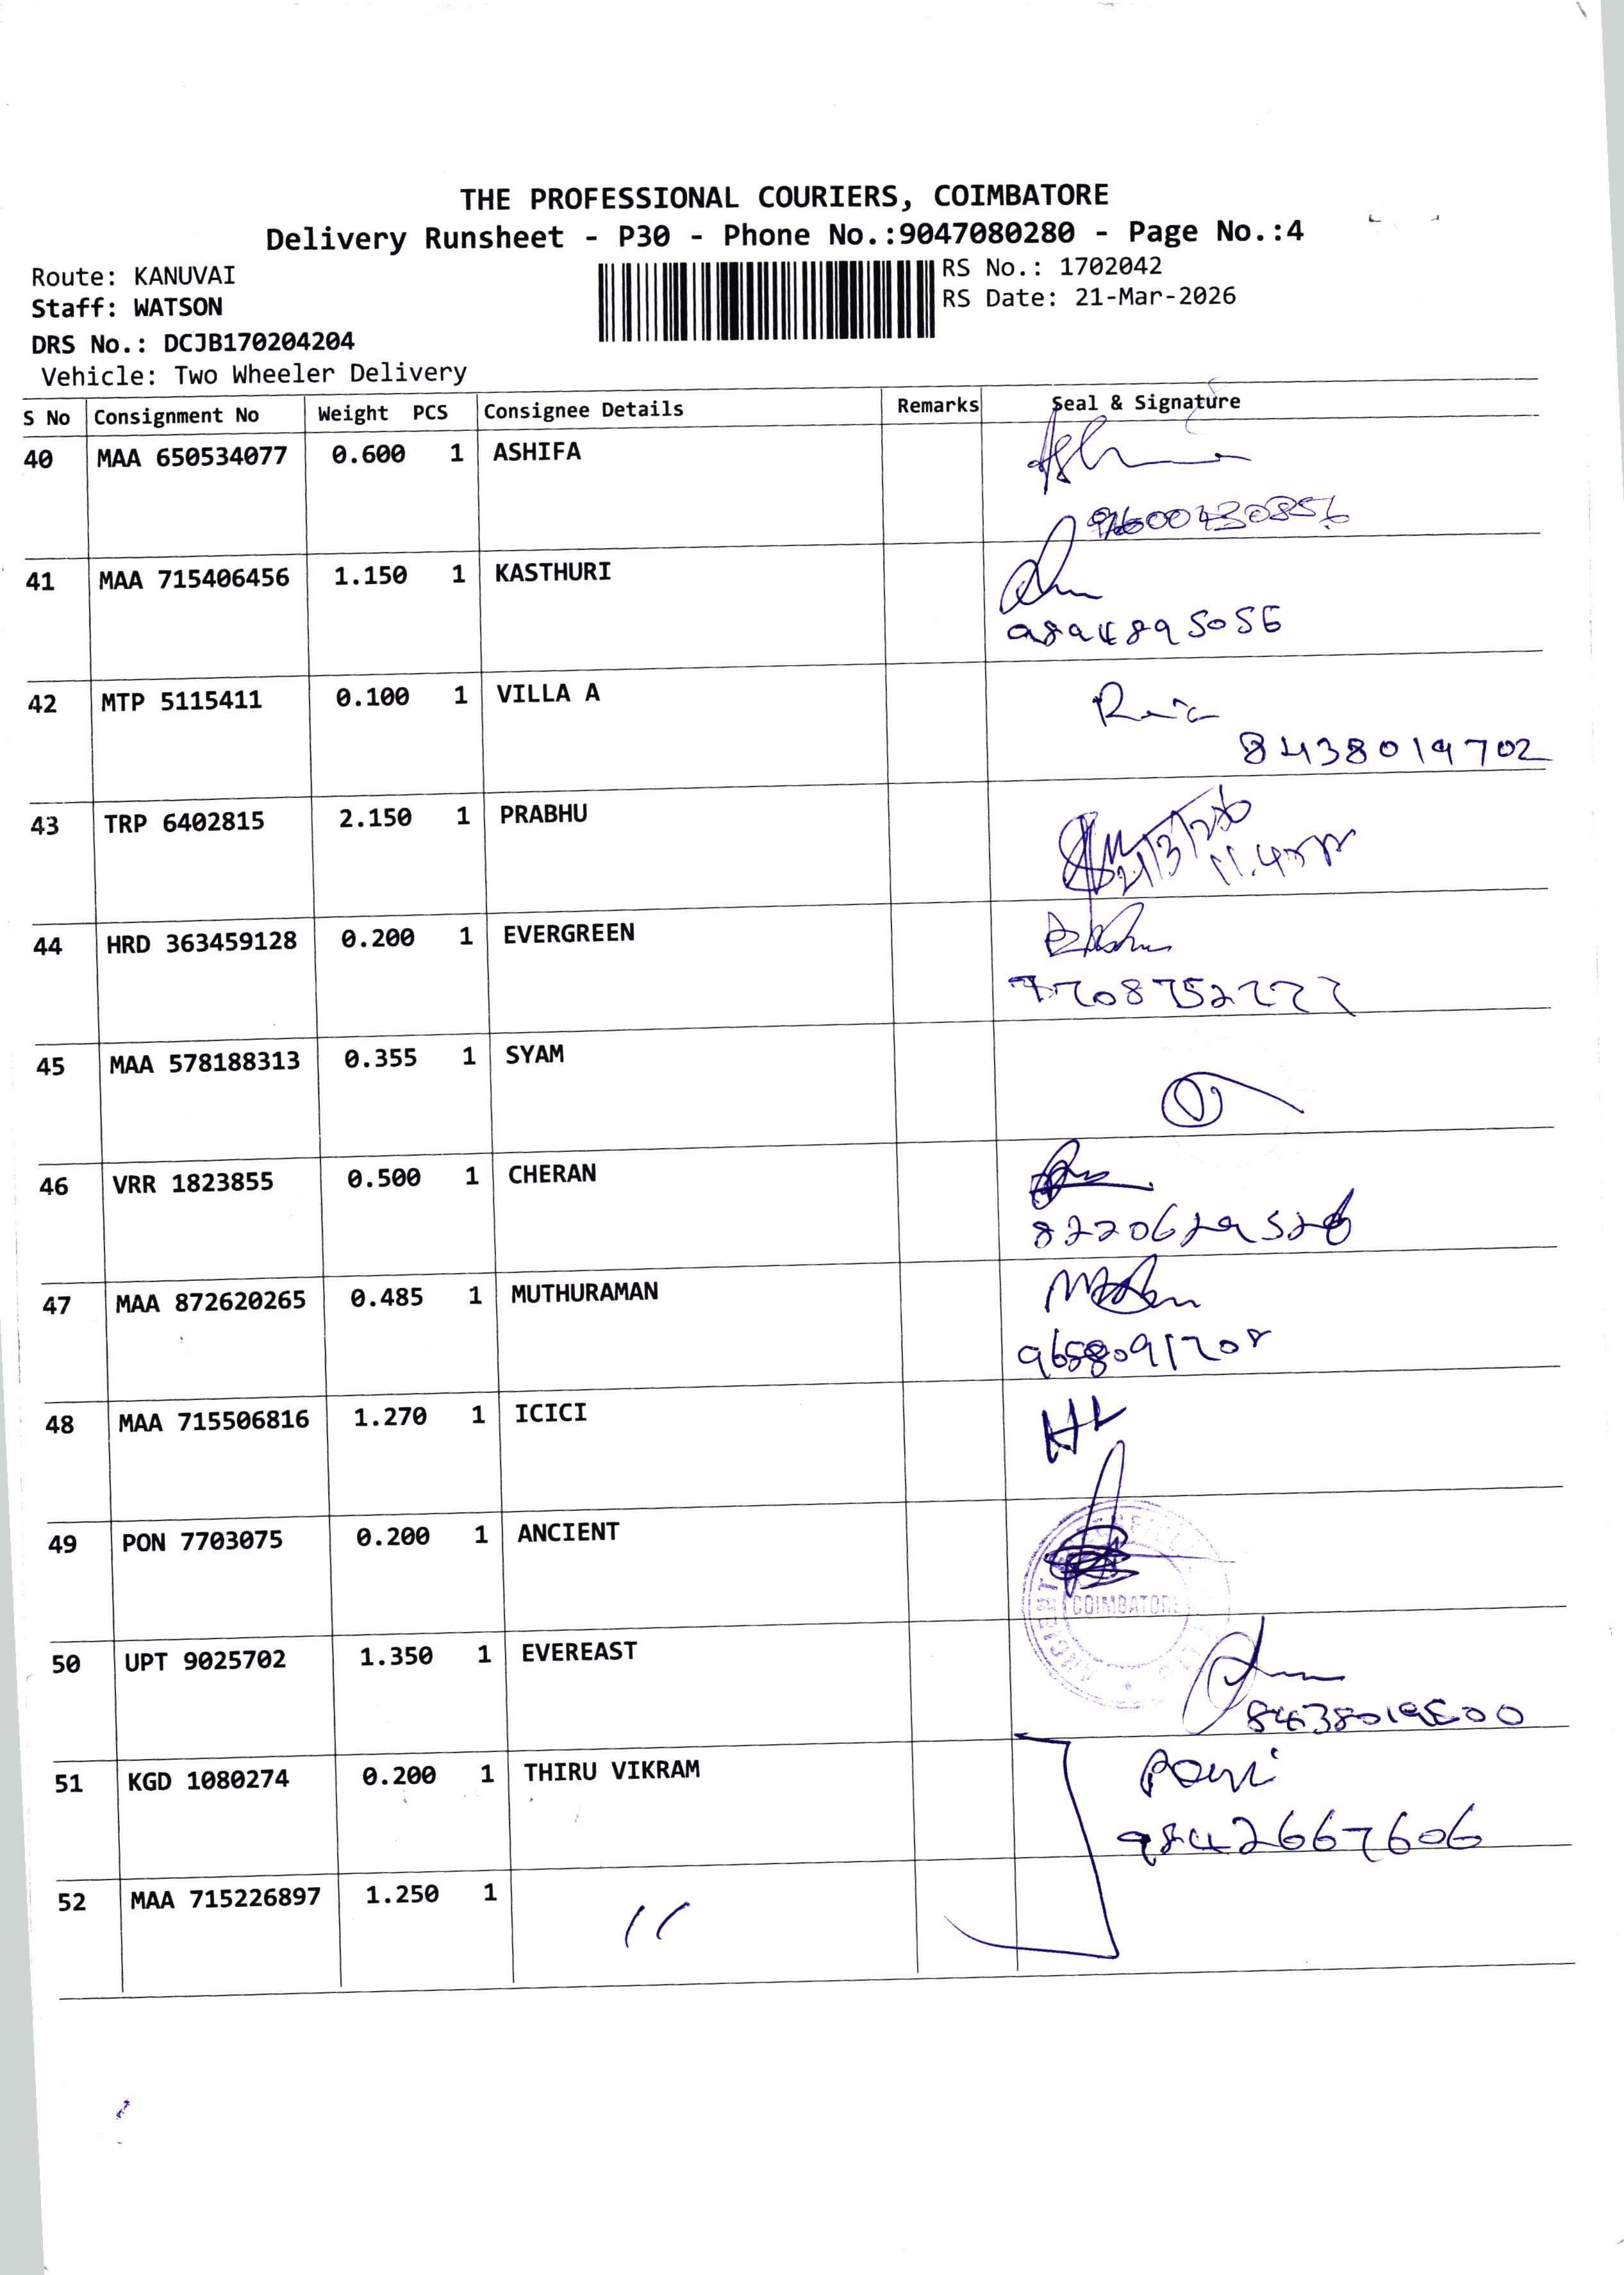 THE PROFESSIONAL COURIERS, COIMBATORE
Delivery Runsheet - P30 - Phone No.:9047080280 - Page No.:4
Route: KANUVAI
RS No.: 1702042
Staff: WATSON
RS Date: 21-Mar-2026
DRS No.: DCJB170204204
Vehicle: Two Wheeler Delivery
S No Consignment No Weight PCS Consignee Details Remarks Seal & Signature
40 MAA 650534077 0.600 1 ASHIFA
41 MAA 715406456 1.150 1 KASTHURI
9894895056
42 MTP 5115411 0.100 1 VILLA A
8438019702
43 TRP 6402815 2.150 1 PRABHU
21/3/26
44 HRD 363459128 0.200 1 EVERGREEN
7708752777
45 MAA 578188313 0.355 1 SYAM
46 VRR 1823855 0.500 1 CHERAN
8220629526
47 MAA 872620265 0.485 1 MUTHURAMAN
9658091708
48 MAA 715506816 1.270 1 ICICI
49 PON 7703075 0.200 1 ANCIENT
COIMBATORE
ANCIENT
50 UPT 9025702 1.350 1 EVEREAST
51 KGD 1080274 0.200 1 THIRU VIKRAM
9842667606
52 MAA 715226897 1.250 1 "